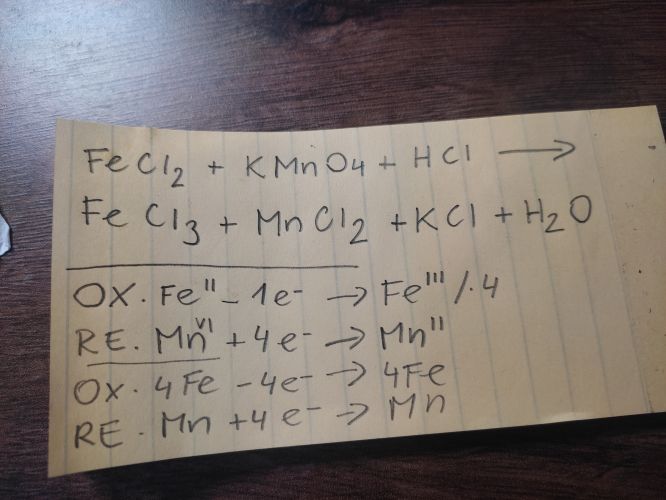 FeCl₂ + KMnO₄ + HCl →
FeCl₃ + MnCl₂ + KCl + H₂O
OX. Feᴵᴵ - 1e⁻ → Feᴵᴵᴵ /. 4
RE. Mnⱽᴵ + 4e⁻ → Mnᴵᴵ
OX. 4Fe - 4e⁻ → 4Fe
RE. Mn + 4e⁻ → Mn